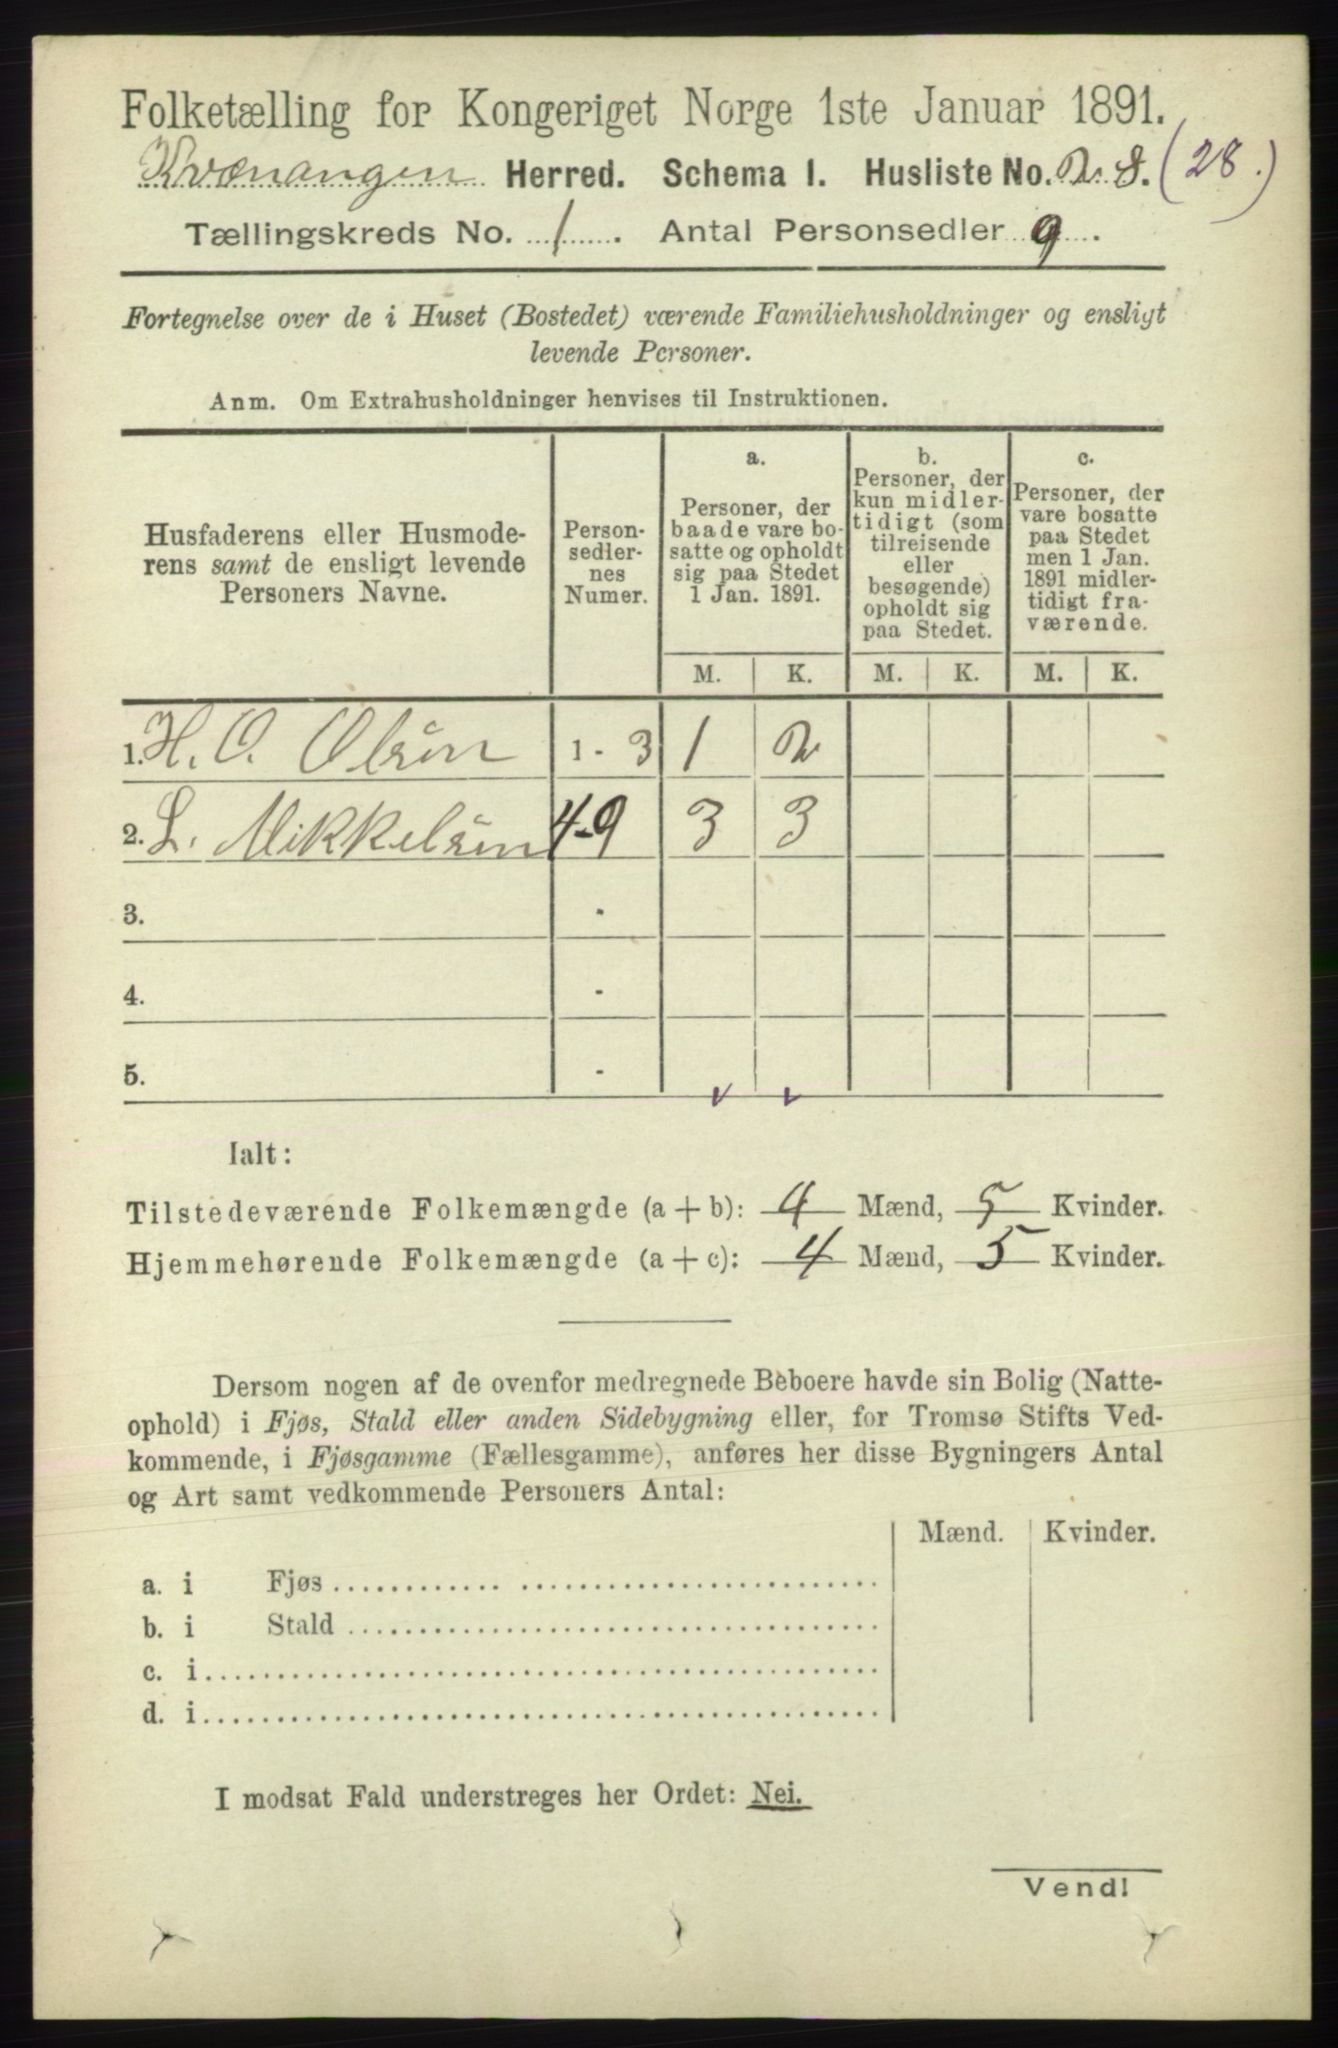 Folketælling for Kongeriget Norge 1ste Januar 1891.
Kvænangen Herred. Schema I. Husliste No. 28. (28.)
Tællingskreds No. 1. Antal Personsedler 9.
Fortegnelse over de i Huset (Bostedet) værende Familiehusholdninger og ensligt
levende Personer.
Anm. Om Extrahusholdninger henvises til Instruktionen.
Husfaderens eller Husmode-
rens samt de ensligt levende
Personers Navne.
Person-
sedler-
nes
Numer.
a.
Personer, der
baade vare bo-
satte og opholdt
sig paa Stedet
1 Jan. 1891.
b.
Personer, der
kun midler-
tidigt (som
tilreisende
eller
besøgende)
opholdt sig
paa Stedet.
c.
Personer, der
vare bosatte
paa Stedet
men 1 Jan.
1891 midler-
tidigt fra-
værende.
M. K. M. K. M. K.
1. H. O. Olsen 1 - 3 1 2
2. L. Mikkelsen 4-9 3 3
3. -
4. -
5. -
Ialt:
Tilstedeværende Folkemængde (a + b): 4 Mænd, 5 Kvinder.
Hjemmehørende Folkemængde (a + c): 4 Mænd, 5 Kvinder.
Dersom nogen af de ovenfor medregnede Beboere havde sin Bolig (Natte-
ophold) i Fjøs, Stald eller anden Sidebygning eller, for Tromsø Stifts Ved-
kommende, i Fjøsgamme (Fællesgamme), anføres her disse Bygningers Antal
og Art samt vedkommende Personers Antal:
Mænd. Kvinder.
a. i Fjøs
b. i Stald
c. i
d. i
I modsat Fald understreges her Ordet: Nei.
Vend!